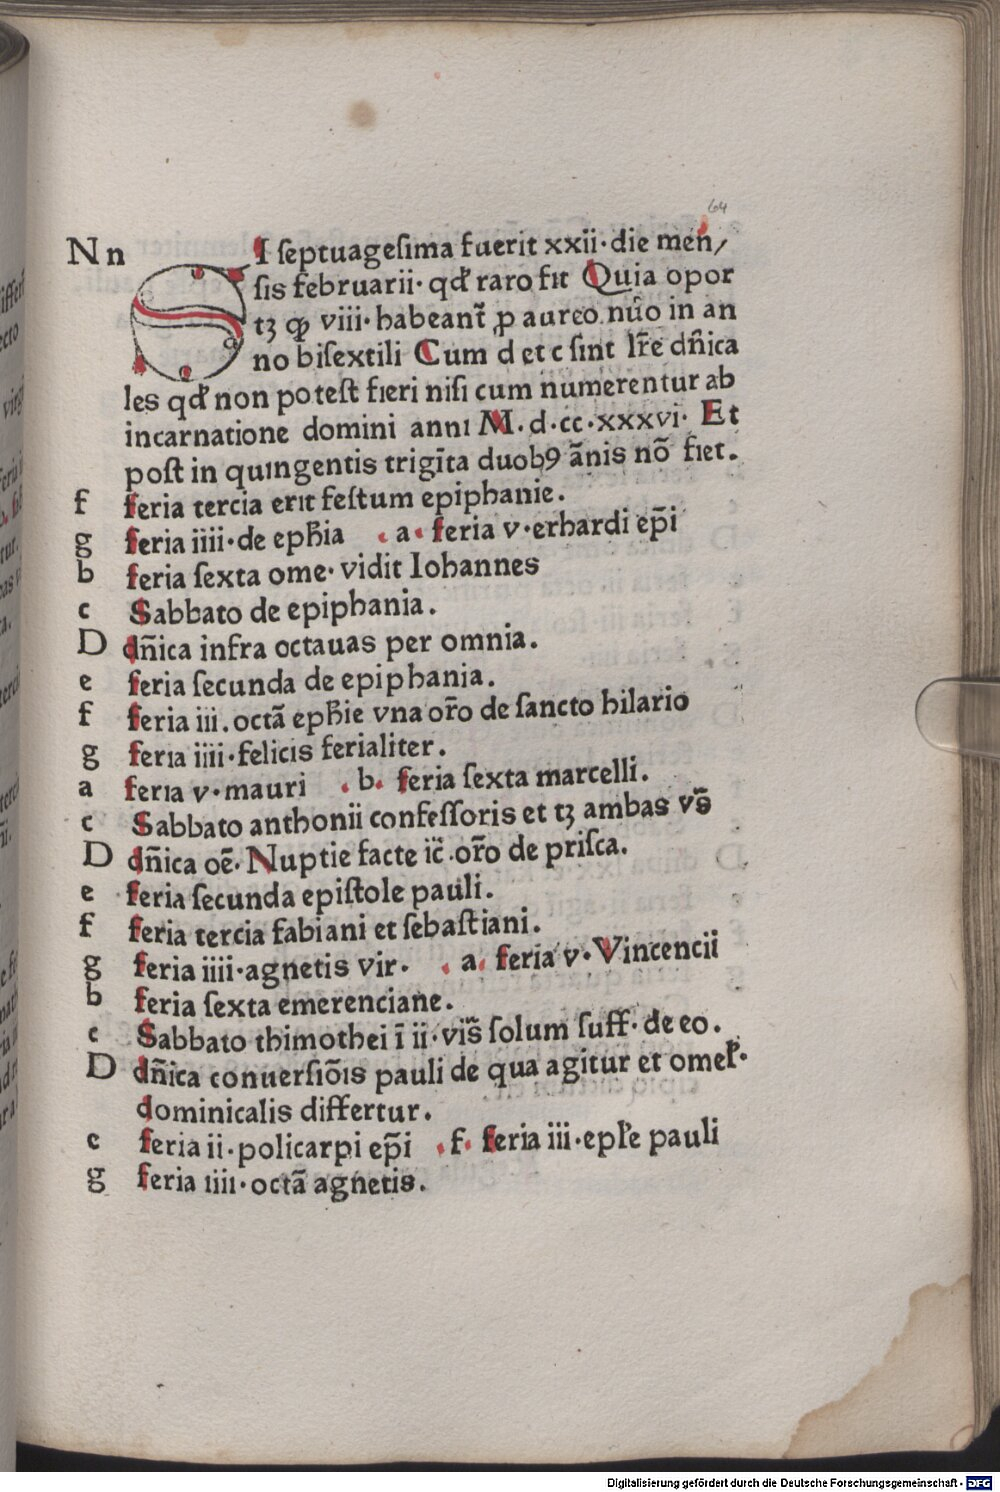 64
Nn SI ſeptuageſima fuerit xxii· die men/
ſis februarii· qđ raro fit Quia opor
tꝫ ꝙ viii· habeant̃ ꝑ aureo nũo in an
no biſextili Cum d et c ſint lr̃e dñica
les qđ non poteſt fieri niſi cum numerentur ab
incarnatione domini anni M·d·cc·xxxvi· Et
poſt in quingentis trigĩta duobꝰ ãnis nõ fiet.
f feria tercia erit feſtum epiphanie.
g feria iiii· de epħia · a · feria v· erhardi ep̃i
b feria ſexta ome· vidit Iohannes
c Sabbato de epiphania.
D dñica infra octauas per omnia.
e feria ſecunda de epiphania.
f feria iii. octã epħie vna or̃o de ſancto hilario
g feria iiii· felicis ferialiter.
a feria v· mauri · b · feria ſexta marcelli.
c Sabbato anthonii confeſſoris et tꝫ ambas vs̃
D dñica oẽ· Nuptie facte ic̃ · or̃o de priſca.
e feria ſecunda epiſtole pauli.
f feria tercia fabiani et ſebaſtiani.
g feria iiii· agnetis vir· · a · feria v· Vincencii
b feria ſexta emerenciane.
c Sabbato thimothei ĩ ii· vis̃ ſolum ſuff· de eo.
D dñica conuerſiõis pauli de qua agitur et omeł·
dominicalis differtur.
e feria ii· policarpi ep̃i · f · feria iii· epłe pauli
g feria iiii· octã agnetis.
Digitalisierung gefördert durch die Deutsche Forschungsgemeinschaft - DFG